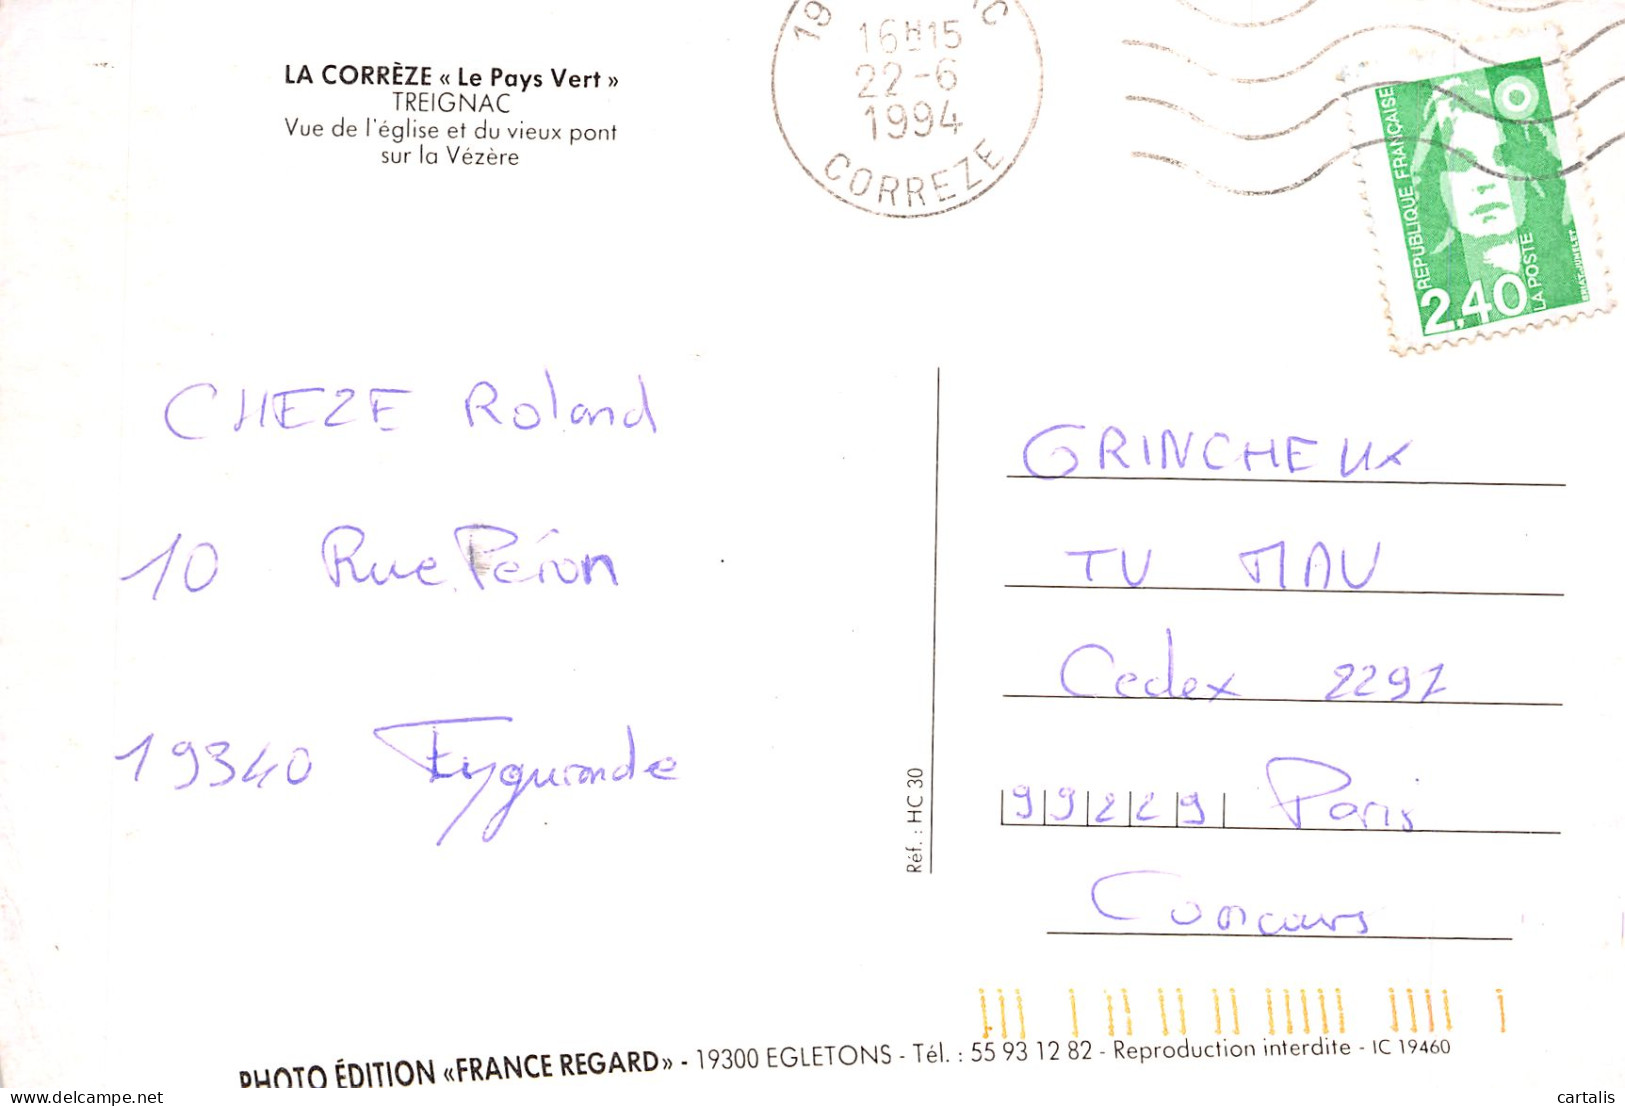 LA CORRÈZE « Le Pays Vert »
TREIGNAC
Vue de l'église et du vieux pont
sur la Vézère
19
C
16H15
22-6
1994
CORREZE
REPUBLIQUE FRANÇAISE
2,40
LA POSTE
BRIAT-JUMELET
CHEZE Roland
10 Rue Péron
19340 Eygurande
GRINCHEUX
TV MAV
Cedex 2297
99229 Paris
Concours
Réf. : HC 30
PHOTO ÉDITION «FRANCE REGARD» - 19300 EGLETONS - Tél. : 55 93 12 82 - Reproduction interdite - IC 19460
cartalis